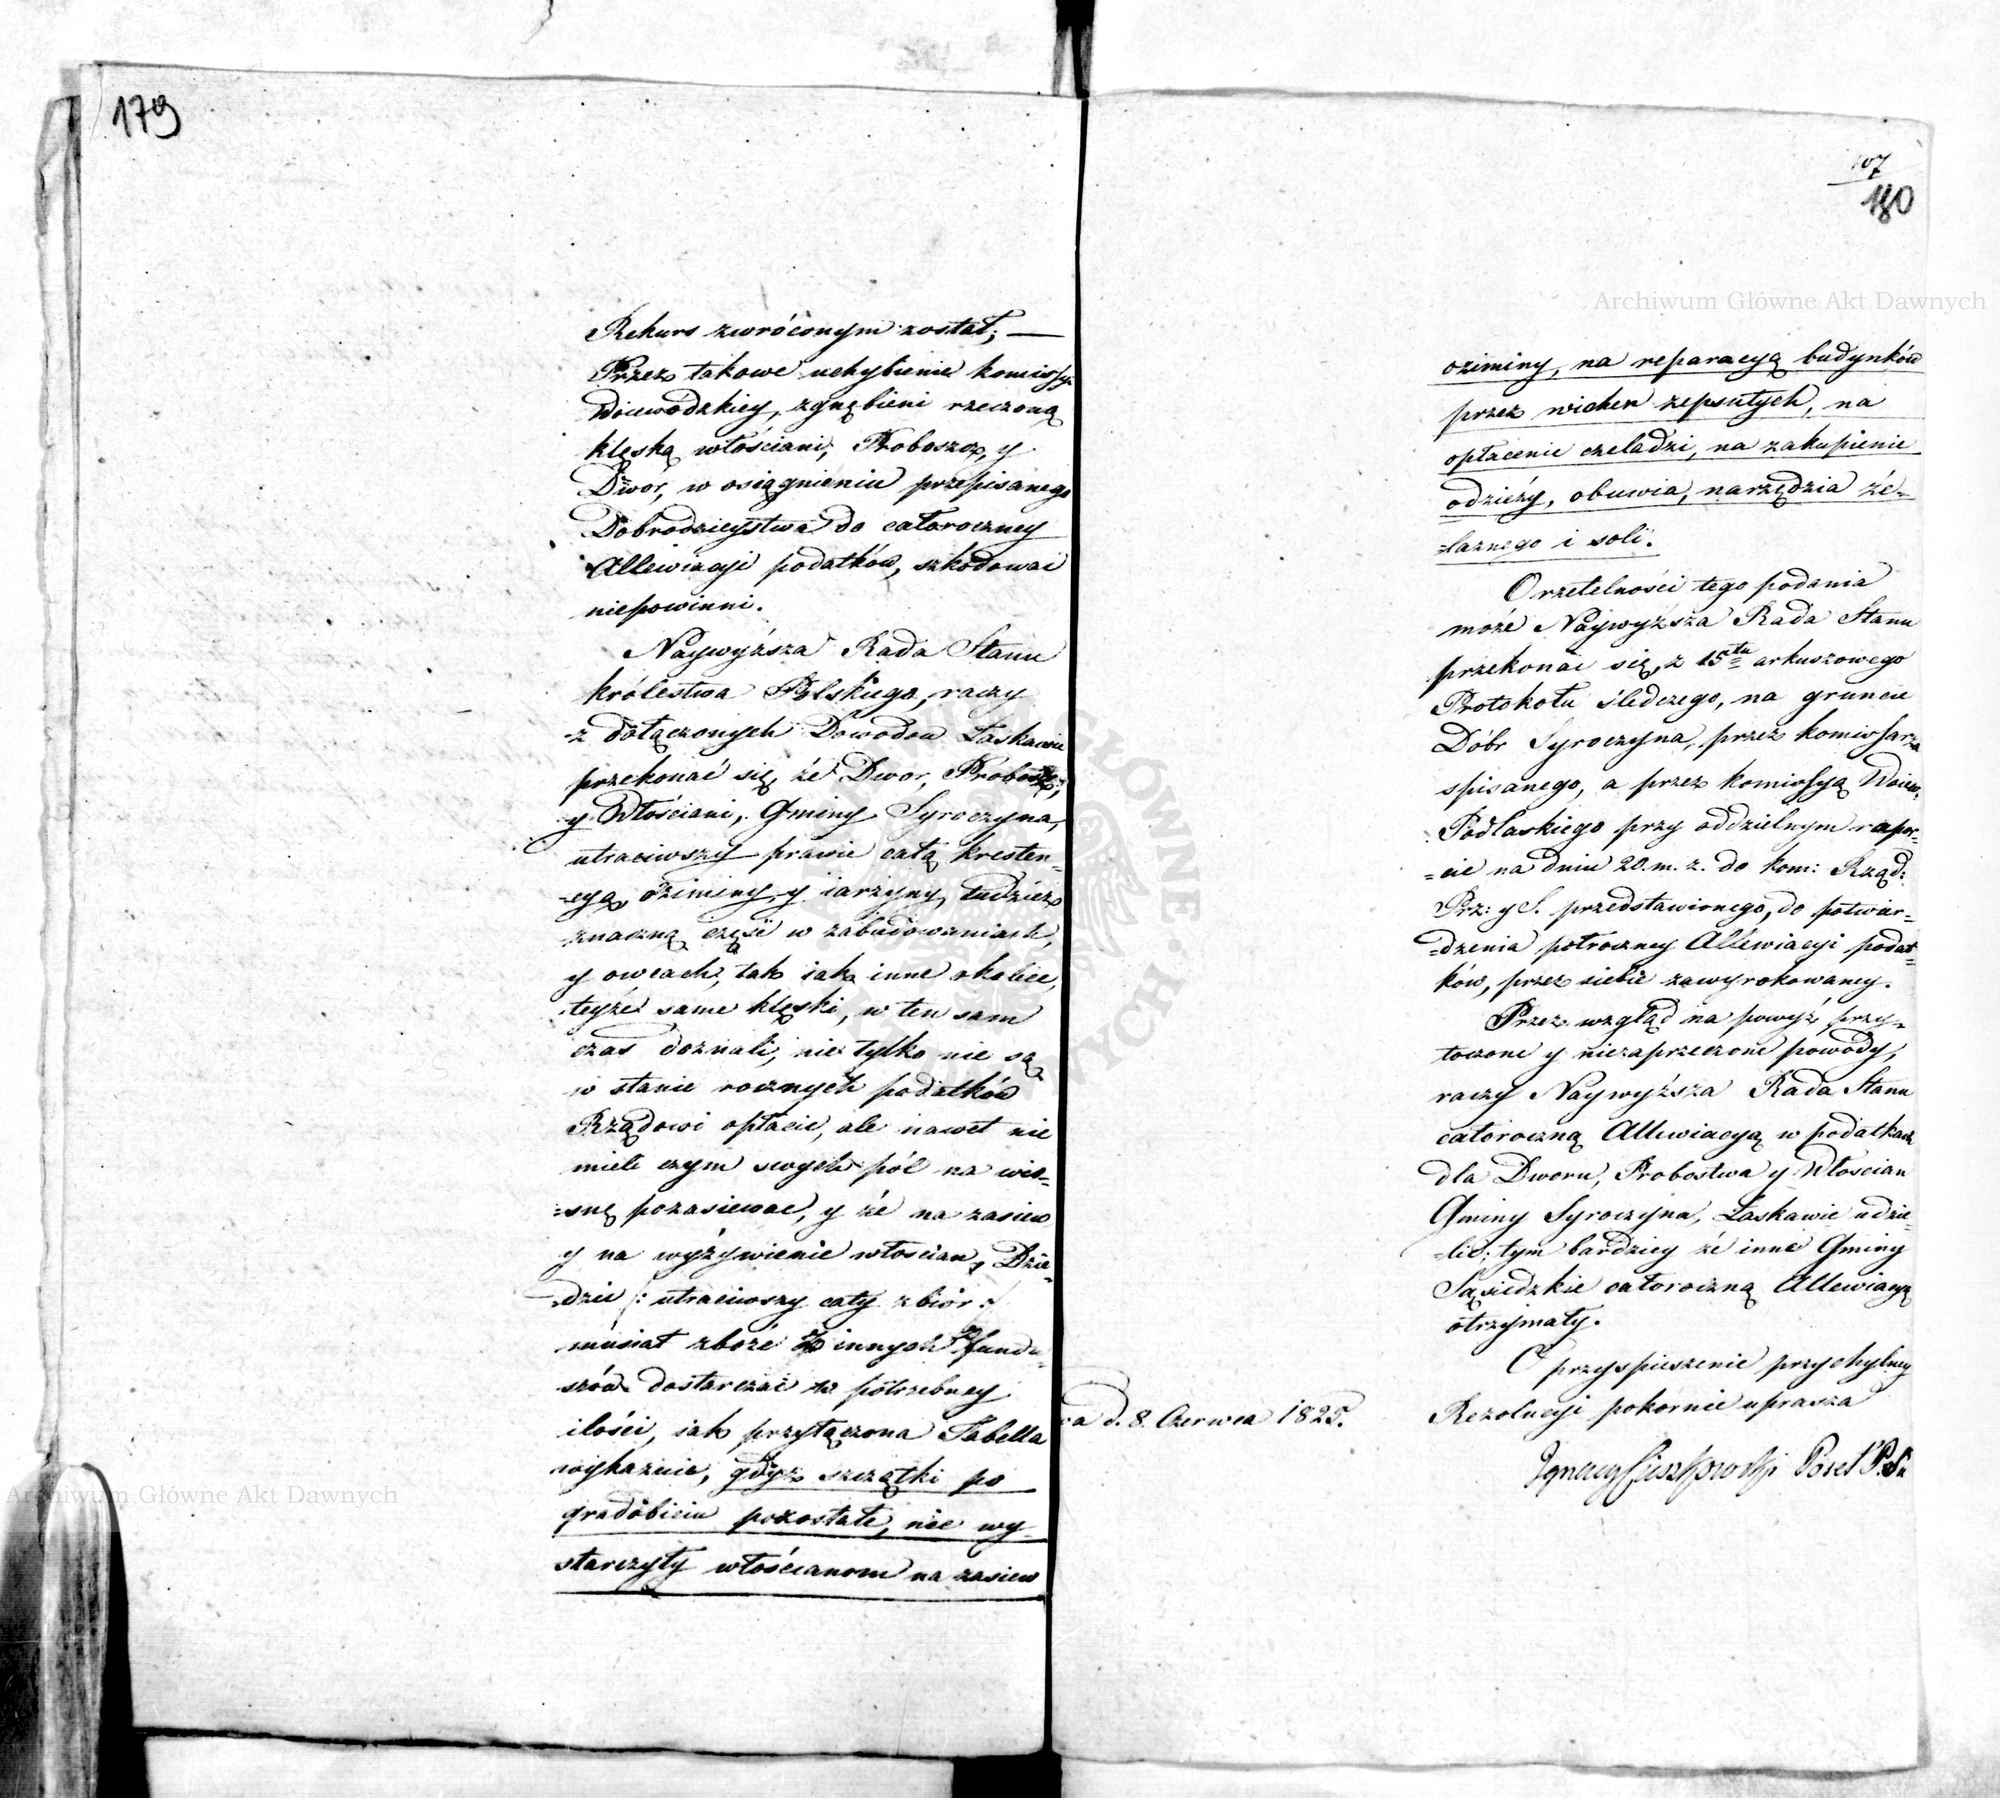 179
Rekurs zwróconym został; —
Przez takowe uchybienie Komissyi
Woiewodzkiey, zgnębieni rzeczoną
klęską włościani, Proboszcz, y
Dwor, w osiągnieniu przepisanego
Dobrodzieystwa do całoroczney
Allewiacyi podatków, szkodować
niepowinni.
Naywyższa Rada Stanu
królestwa Polskiego, raczy
z dołączonych Dowodow Łaskawie
przekonać się, że Dwor, Proboszcz,
y Włościani, Gminy Syroczyna,
utraciwszy prawie całą kresten=
=cyą, oziminy y iarzyny, tudzież
znaczną część w zabudowaniach,
y owcach, tak iak inne okolice,
teyże same klęski, w ten sam
czas doznali, nie tylko nie są
w stanie rocznych podatków
Rządowi opłacić, ale nawet nie
mieli czym swych pól na wio=
=snę pozasiewać, y że na zasiew
y na wyżywienie włościan, Dzie=
=dzic /: utraciwszy cały zbiór :/
musiał zboże z innych fundu=
szów dostarczać w potrzebney
ilości, iak przyłączona Tabella
wykazuie, gdyż szczątki po
gradobiciu pozostałe, nie wy=
starczyły włościanom na zasiew
107
180
oziminy, na reparacyą budynków
przez wicher zepsutych, na
opłacenie czeladzi, na zakupienie
odzieży, obuwia, narzędzia że=
=laznego i soli.
O rzetelności tego podania
może Naywyższa Rada Stanu
przekonać się, z 15tu arkuszowego
Protokołu śledczego, na gruncie
Dóbr Syroczyna, przez Komissarza
spisanego, a przez Komissyą Woiew:
Podlaskiego przy oddzielnym rapor=
=cie na dniu 20. m. z. do Kom: Rząd:
Prz: y S. przedstawionego, do potwier=
=dzenia półroczney Allewiacyi podat=
ków, przez siebie zawyrokowaney.
Przez wzgląd na powyż przy=
toczone y niezaprzeczone powody,
raczy Naywyższa Rada Stanu
całoroczną Allewiacyą w podatkach
dla Dworu, Probostwa y Włoscian
Gminy Syroczyna, Łaskawie udzie=
=lić; tym bardziey że inne Gminy
Sąsiedzkie całoroczną Allewiacyą
otrzymały.
O przyspieszenie przychylney
Rezolucyi pokornie uprasza
d. 8. Czerwca 1825.
Ignacy Cieszkowski Poseł
Archiwum Główne Akt Dawnych
Archiwum Główne Akt Dawnych